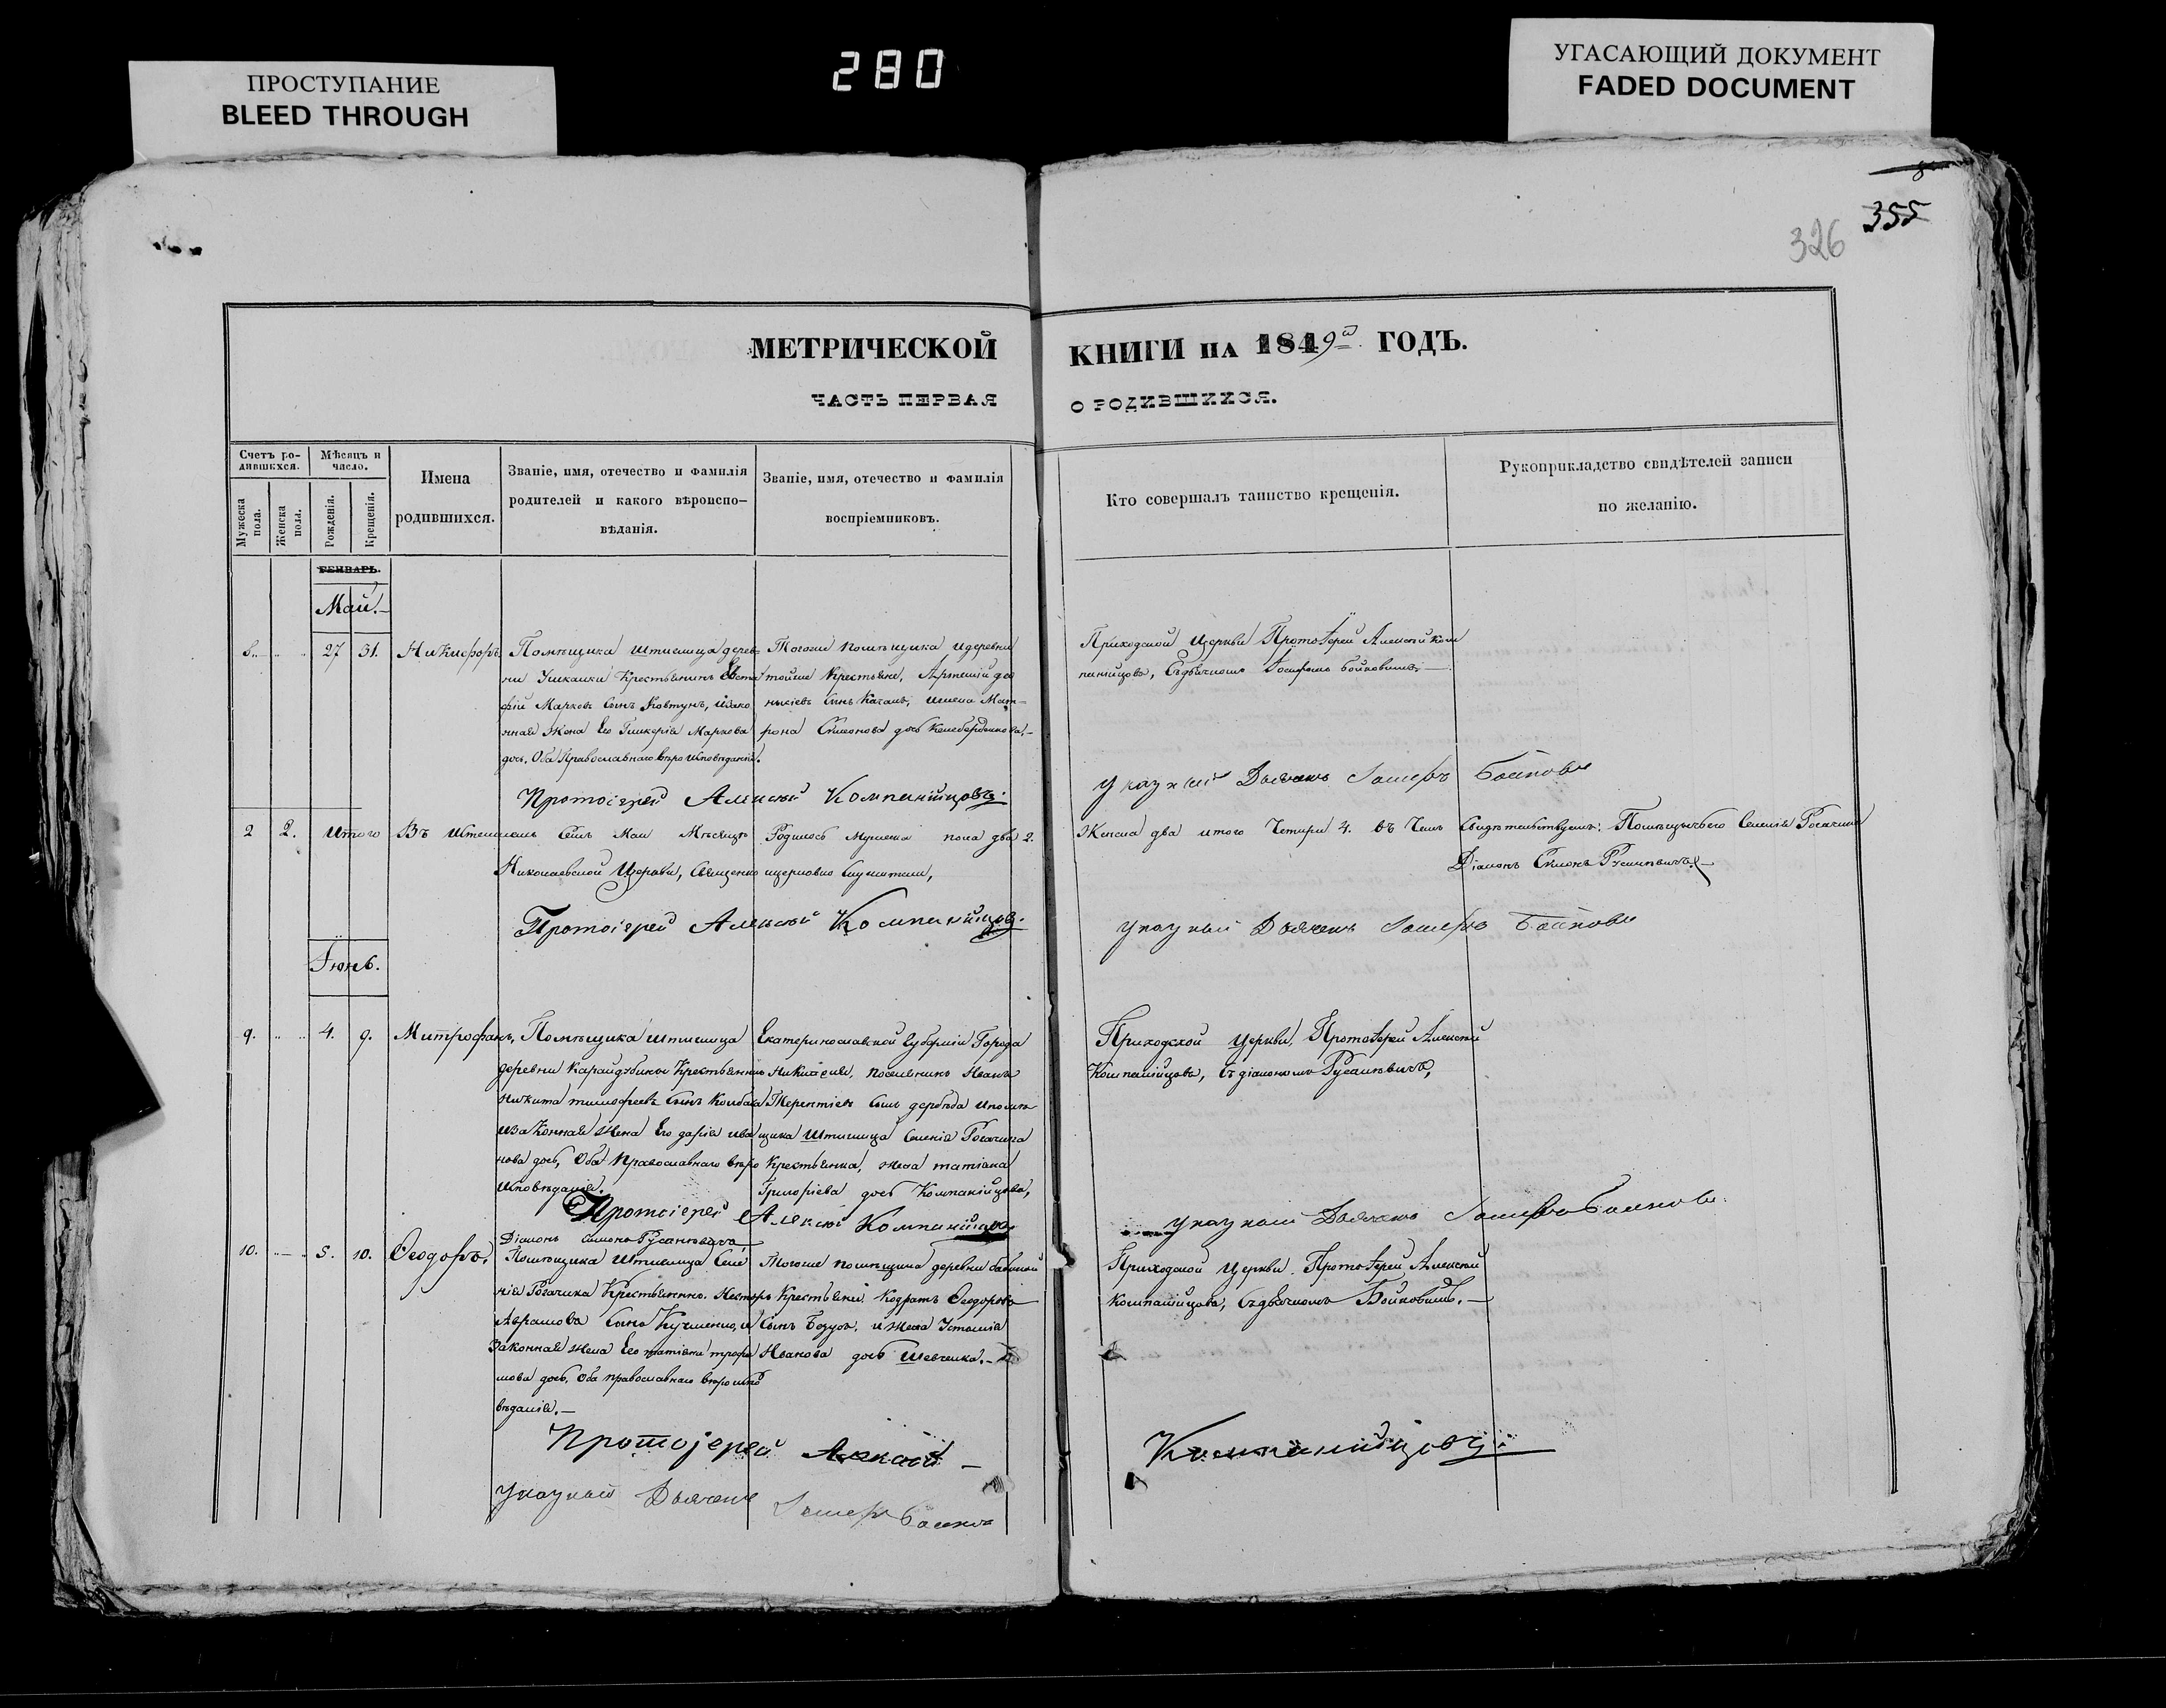 ПРОСТУПАНИЕ
BLEED THROUGH
280
УГАСАЮЩИЙ ДОКУМЕНТ
FADED DOCUMENT
355
326
МЕТРИЧЕСКОЙ КНИГИ НА 1849й ГОДЪ.
ЧАСТЬ ПЕРВАЯ О РОДИВШИХСЯ.
Счетъ ро-
дившихся.
Мужеска пола.
Женска пола.
Мѣсяцъ и
число.
Рожденія.
Крещенія.
Имена
родившихся.
Званіе, имя, отечество и фамилія
родителей и какого вѣроиспо-
вѣданія.
Званіе, имя, отечество и фамилія
воспріемниковъ.
Кто совершалъ таинство крещенія.
Рукоприкладство свидѣтелей записи
по желанію.
ГЕНВАРЬ.
Май.
8. 27 31. Никифоръ
Помѣщика Штиглица дерев-
ни Ушкалки Крестьянинъ Евста
фій Марковъ Сынъ Ковтунъ, изако
нная Жена Его Гликерія Маркова
дочь. Оба Православнаго вѣроисповѣданія.
Тогоже помѣщика идеревни
тойже Крестьяне, Артемій
Сынъ Качанъ, Мат-
рона Симонова дочь
Приходской Церкви Протоіерей Алексій Ком
панійцовъ, Съдьячкомъ Іосифомъ Бойковымъ.
Протоіерей Алексій Компанійцовъ.
указный Дьячекъ Іосифъ Бойковъ
2 2. Итого Въ Маи Мѣсяцѣ Родилось Мужеска пола два 2. Женска два итого Четыри 4. въ Чемъ Свидѣтельствуемъ: Помѣщичьяго Селенія Рогачика
Николаевской Церкви, Священно ицерковно Служители,
Діаконъ Симонъ Русаневичъ.
Протоіерей Алексій Компанійцовъ.
указный Дьячекъ Іосифъ Бойковъ
Іюнь.
9. 4. 9. Митрофанъ,
Помѣщика Штиглица
деревни Карайдубины Крестьянинъ
Никита тимофеевъ Сынъ Колбаса
изаконная Жена Его дарія ива
нова дочь, Оба Православнаго вѣро
исповѣданія.
Екатеринославской Губерніи Города
Никополя, поселянинъ Иванъ
Терентіевъ Сынъ дербѣда ипомѣ
щика Штиглица Селенія Рогачика
Крестьянка, жена татіана
Григоріева дочь Компанійцова,
Приходской Церкви, Протоіерей Алексій
Компанійцовъ, Съдіакономъ Русаневичъ,
Протоіерей Алексій Компанійцовъ
Діаконъ Симонъ Русаневичъ
указный Дьячекъ Іосифъ Бойковъ.
10. 5. 10. Ѳеодоръ.
Помѣщика Штиглица Селе
нія Рогачика Крестьянинъ. Несторъ
Аврамовъ Сынъ Кучменко, и
Законная жена Его татіана трофи
мова дочь, Оба православнаго вѣроиспо
вѣданія.
Тогоже помѣщика деревни бабиной
Крестьяни. Кодратъ Ѳеодоровъ
Сынъ и жена Устинія
Иванова дочь Шевченка.
Приходской Церкви. Протоіерей Алексій
Компанійцовъ, Съдьячкомъ Бойковымъ.
Протоіерей Алексій Компанійцовъ
указный Дьячекъ Іосифъ Бойковъ